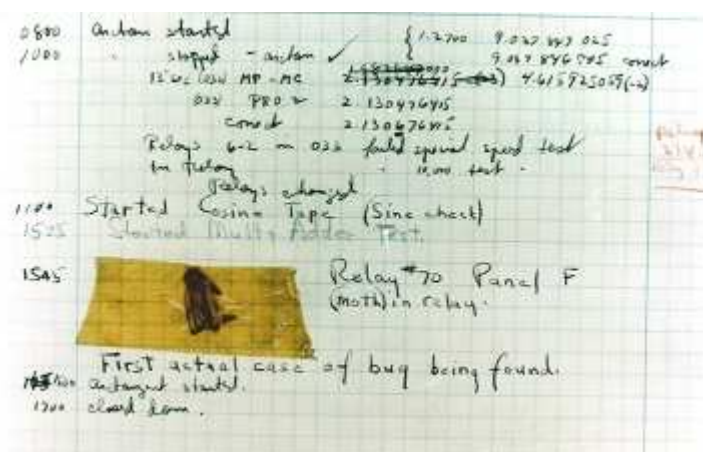 0800 antan started { 1.2700 9.037 847 025
1000 " stopped - antan ✓ 9.037 846 995 correct
13"uc (032) MP-MC 2.130476415 (-3) 4.615925059(-2)
033 PRO 2 2.130476415
correct 2.130676415
Relays 6-2 in 033 failed special speed test
in Relay " 10,000 test "
Relays changed
1100 Started Cosine Tape (Sine check)
1525 Started Multi Adder Test.
1545 Relay #70 Panel F
(moth) in relay.
First actual case of bug being found.
antangent started.
1700 closed down.